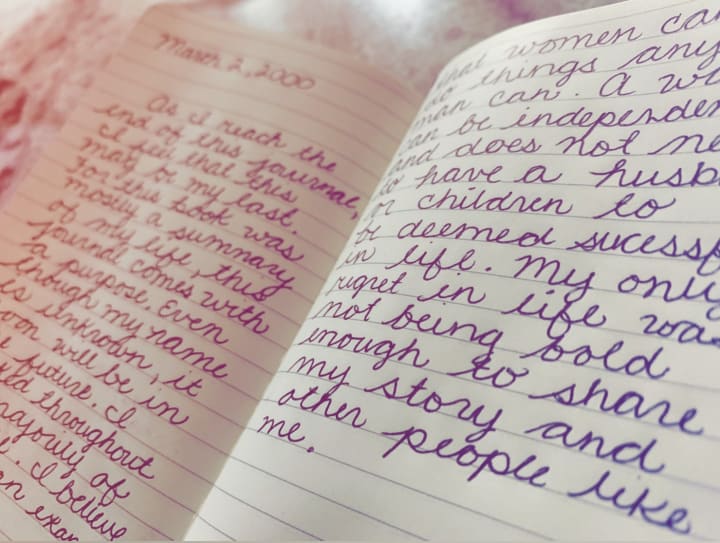 March 2, 2000
As I reach the
end of this journal,
I feel that this
may be my last.
For this book was
mostly a summary
of my life, this
journal comes with
a purpose. Even
though my name
is unknown, it
soon will be in
future. I
throughout
majority of
I believe
that women can
do things any
man can. A
can be independen
and does not ne
to have a husb
or children to
be deemed sucessf
in life. My only
regret in life was
not being bold
enough to share
my story and
other people like
me.